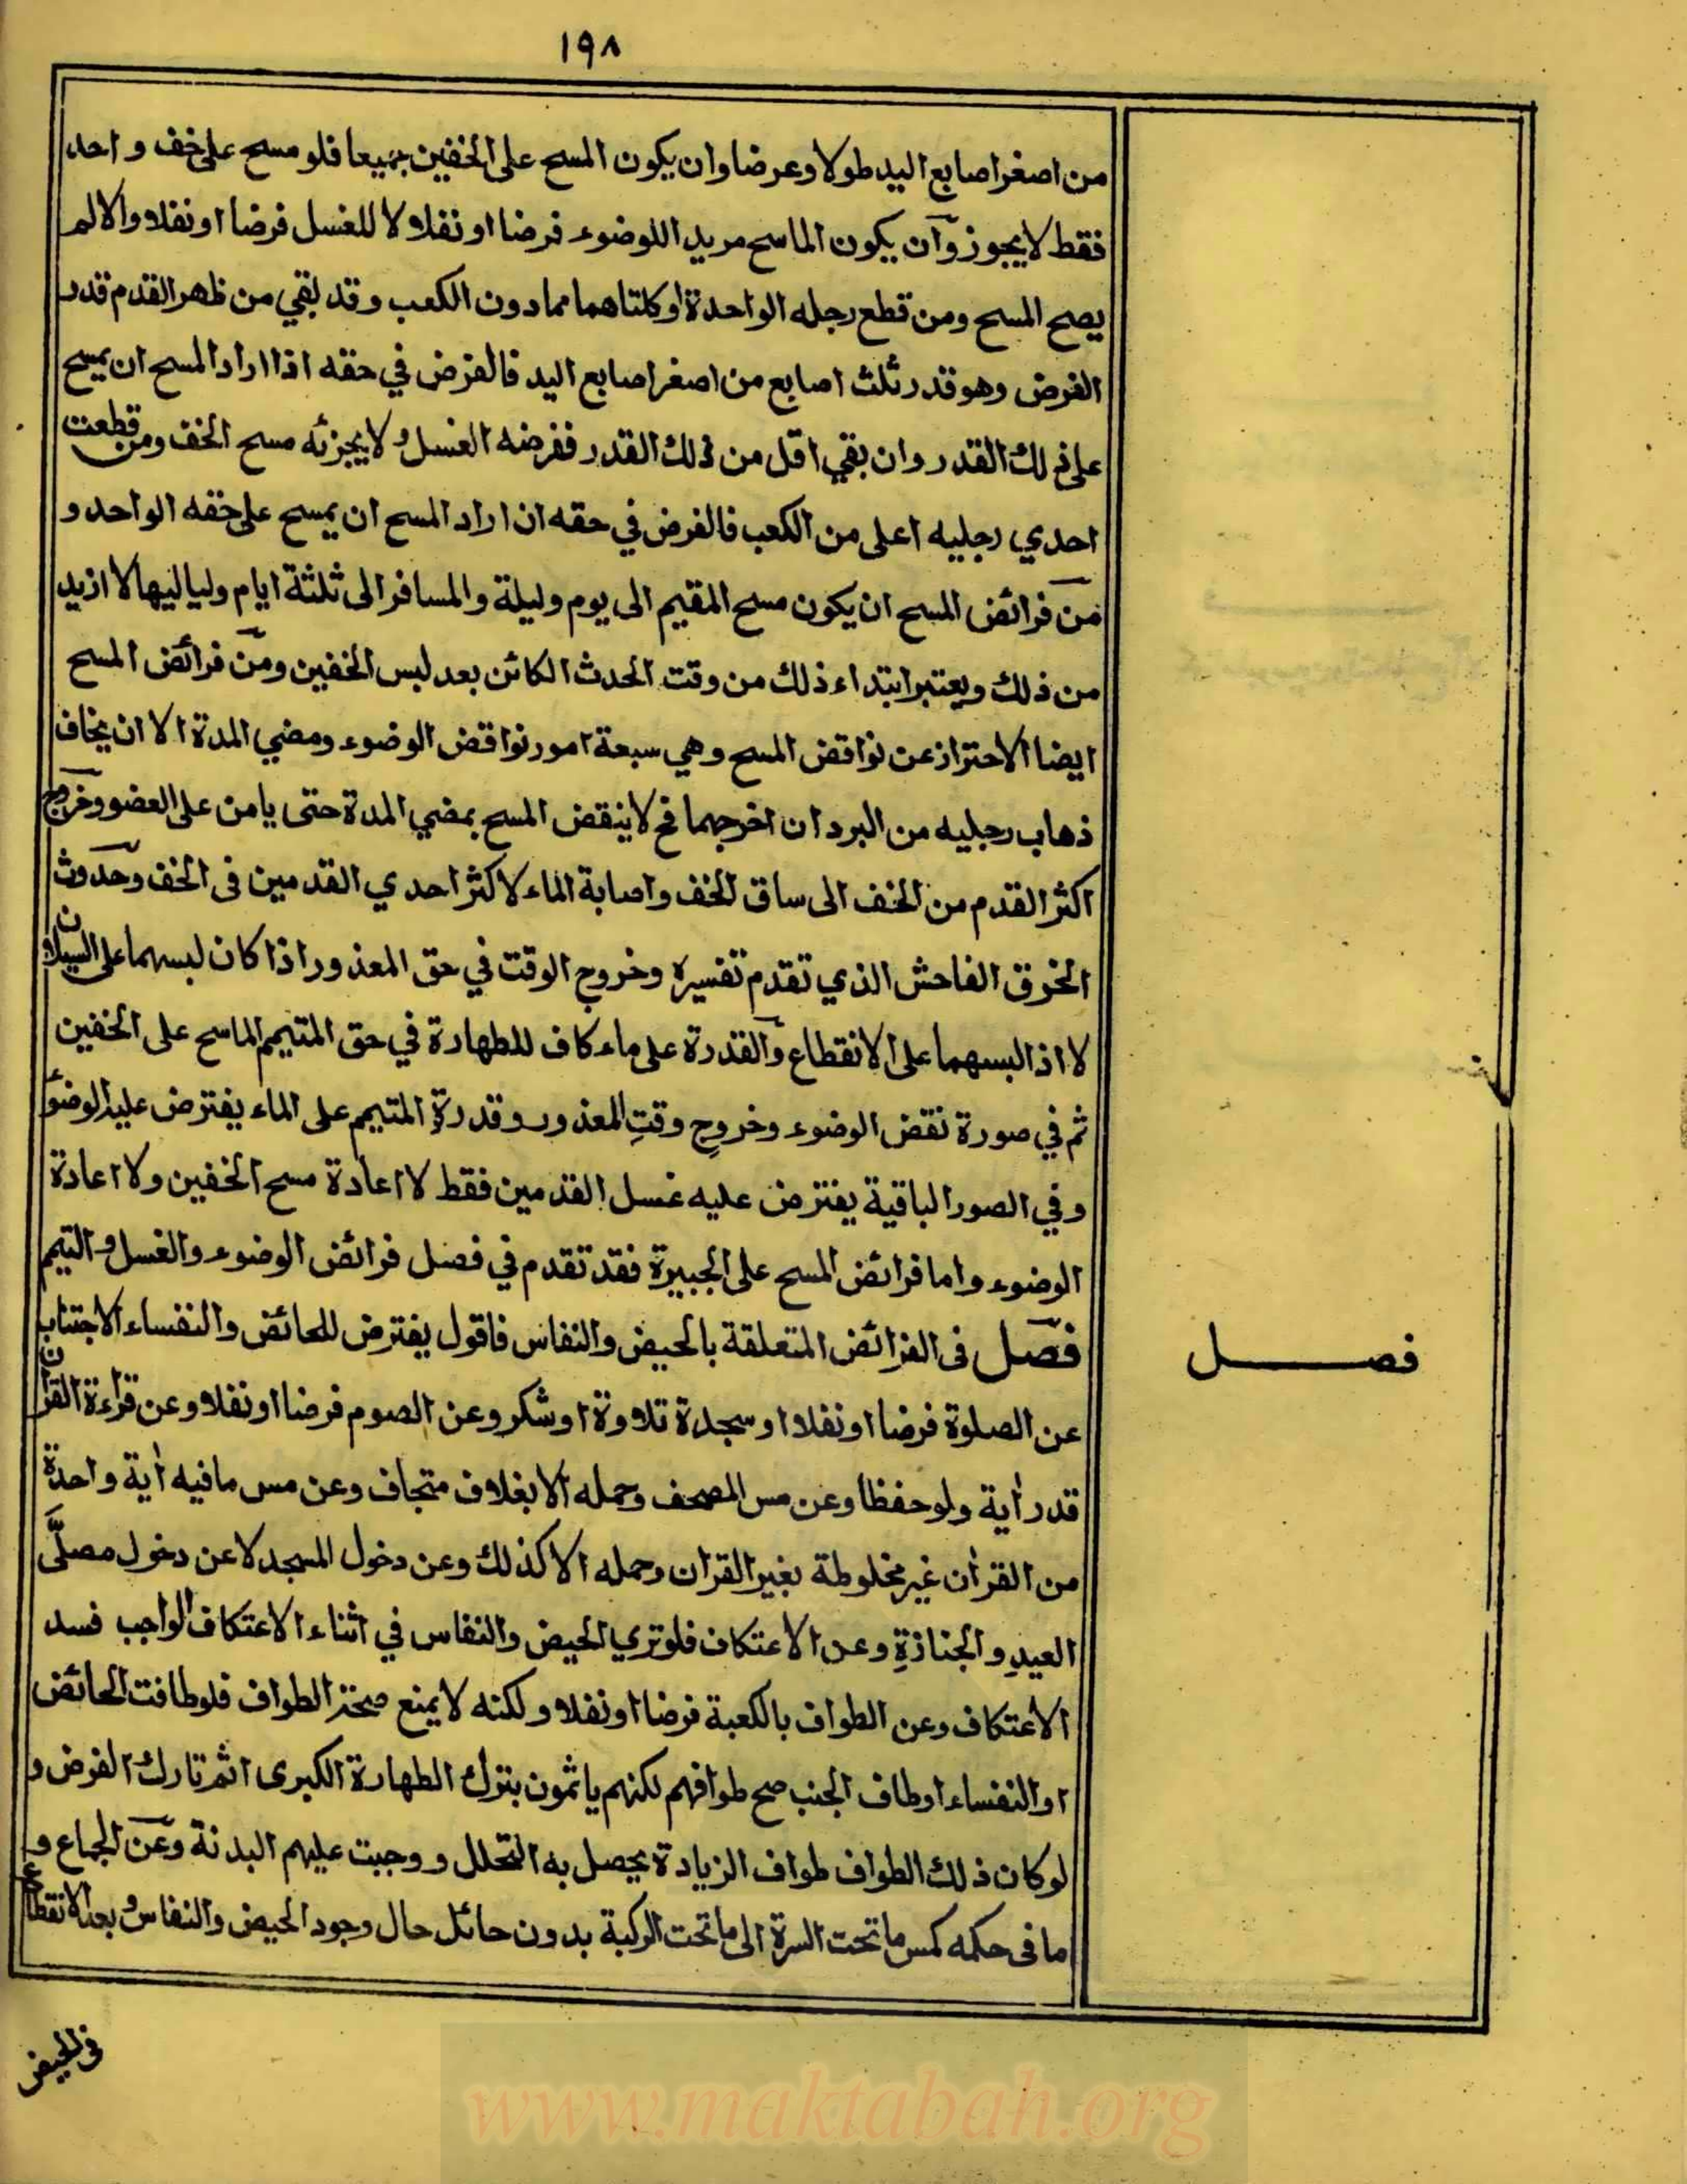 ١٩٨
من اصغر اصابع اليد طولا وعرضا وان يكون المسح على الخفين جميعا فلو مسح على خف واحد
فقط لا يجوز وآن يكون الماسح مريدا للوضوء فرضا او نفلا و لا للغسل فرضا او نفلا والا لم
يصح المسح ومن قطع رجله الواحدة او كلتاهما مما دون الكعب وقد بقي من ظهر القدم قدر
الفرض وهو قدر ثلث اصابع من اصغر اصابع اليد فالفرض في حقه اذا اراد المسح ان يمسح
على ذلك القدر وان بقي اقل من ذلك القدر ففرضه الغسل ولا يجزئه مسح الخف ومن قطعت
احدي رجليه اعلى من الكعب فالفرض في حقه ان اراد المسح ان يمسح على خفه الواحد و
من فرائض المسح ان يكون مسح المقيم الى يوم وليلة والمسافر الى ثلثة ايام ولياليها لا ازيد
من ذلك ويعتبر ابتداء ذلك من وقت الحدث الكائن بعد لبس الخفين ومن فرائض المسح
ايضا الاحتراز عن نواقض المسح وهي سبعة امور نواقض الوضوء ومضي المدة الا ان يخاف
ذهاب رجليه من البرد ان اخرجهما فح لا ينقض المسح بمضي المدة حتى يامن على العضو وخروج
اكثر القدم من الخف الى ساق الخف واصابة الماء لاكثر احدي القدمين فى الخف وحدوث
الخرق الفاحش الذي تقدم تفسيره وخروج الوقت في حق المعذور اذا كان لبسهما على السيلان
لا اذا لبسهما على الانقطاع والقدرة على ماء كاف للطهارة في حق المتيمم الماسح على الخفين
ثم في صورة نقض الوضوء وخروج وقتِ المعذور وقدرةِ المتيمم على الماء يفترض عليه الوضوء
وفي الصور الباقية يفترض عليه غسل القدمين فقط لا اعادة مسح الخفين ولا اعادة
الوضوء واما فرائض المسح على الجبيرة فقد تقدم في فصل فرائض الوضوء والغسل والتيمم
فصل فى الفرائض المتعلقة بالحيض والنفاس فاقول يفترض للحائض والنفساء الاجتناب
فصل
عن الصلوة فرضا او نفلا او سجدة تلاوة او شكر وعن الصوم فرضا او نفلا وعن قراءة القران
قدر اٰية ولو حفظا وعن مس المصحف وحمله الا بغلاف متجاف وعن مس ما فيه اٰية واحدة
من القراٰن غير مخلوطة بغير القراٰن وحمله الا كذلك وعن دخول المسجد لا عن دخول مصلَّى
العيدِ والجنازةِ وعن الاعتكاف فلو تري الحيض والنفاس في اثناء الاعتكاف الواجب فسد
الاعتكاف وعن الطواف بالكعبة فرضا او نفلا ولكنه لا يمنع صحة الطواف فلو طافت الحائض
او النفساء او طاف الجنب صح طوافهم لكنهم ياثمون بترك الطهارة الكبرى اثم تارك الفرض و
لو كان ذلك الطواف طواف الزيادة يحصل به التحلل ووجبت عليهم البدنة وعن الجماع و
ما فى حكمه كمس ما تحت السرة الى ما تحت الركبة بدون حائل حال وجود الحيض والنفاس وبعد الانقطاع
فى الحيض
www.maktabah.org